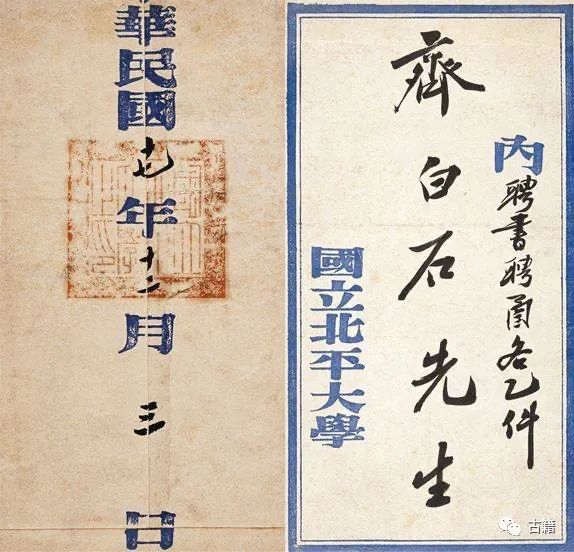 華民國十七年十二月三日
內聘書聘函各乙件
齊白石先生
國立北平大學
古籍